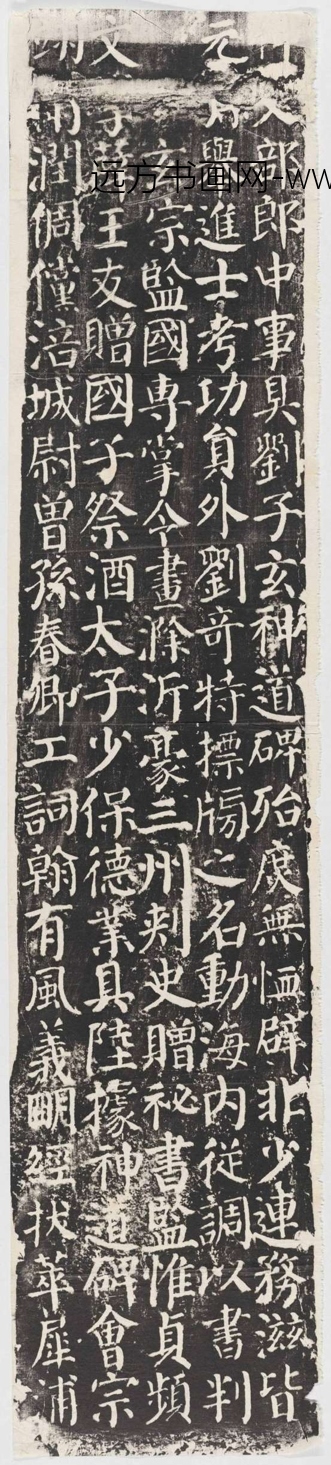 部郎中事具劉子玄神道碑殆庶無恤辟非少連務滋皆
元舉進士考功員外劉奇特摽牓之名動海内從調以書判
玄宗監國專掌令畫滁沂豪三州刾史贈祕書監惟貞頻
文王友贈國子祭酒太子少保德業具陸據神道碑會宗
潤倜儻涪城尉曾孫春卿工詞翰有風義明經拔萃犀浦
远方书画网-ww